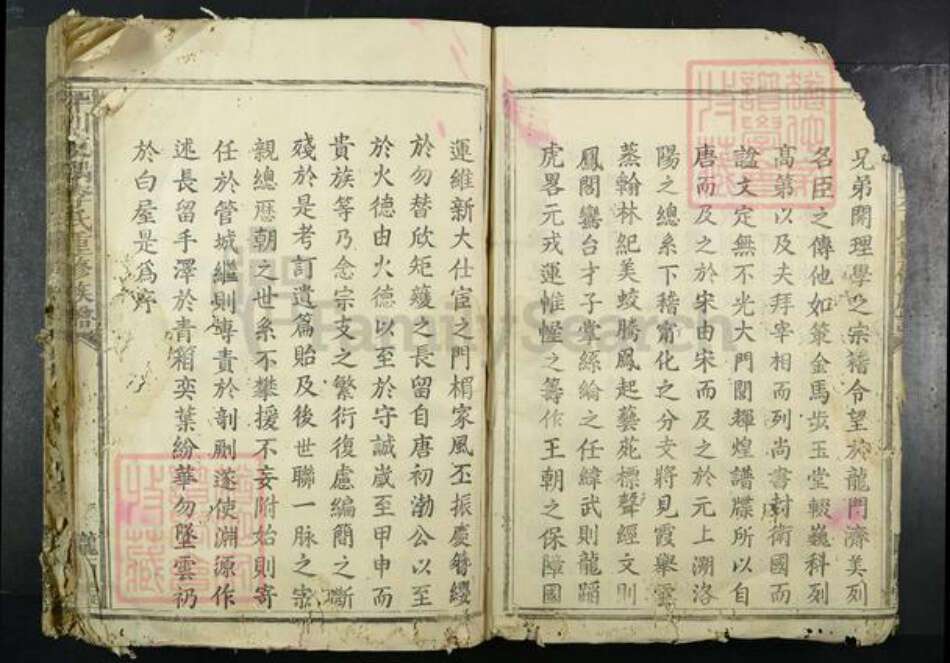 兄弟開理學之宗稽令望於龍門濟美列
名臣之傳他如策金馬步玉堂輟巍科列
高第以及夫拜宰相而列尚書封衛國而
諡文定無不光大門閭輝煌譜牒所以自
唐而及之於宋由宋而及之於元上溯洛
陽之總系下稽甯化之分支將見霞舉雲
蒸翰林紀美蛟騰鳳起藝苑標聲經文則
鳳閣鸞台才子掌絲綸之任緯武則龍蹈
虎畧元戎運惟幄之籌作王朝之保障國
運維新大仕宦之門楣家風丕振慶簪纓
於勿替欣矩矱之長留自唐初渤公以至
於火德由火德以至於守誠嵗至甲申而
貴族等乃念宗支之繁衍復慮編簡之斷
殘於是考訂遺篇貽及後世聯一脉之宗
親總歷朝之世系不攀援不妄附始則寄
任於管城繼則專責於剞劂遂使淵源作
述長留手澤於青箱奕葉紛華勿墜雲礽
於白屋是爲序
李氏重修族譜
FamilySearch